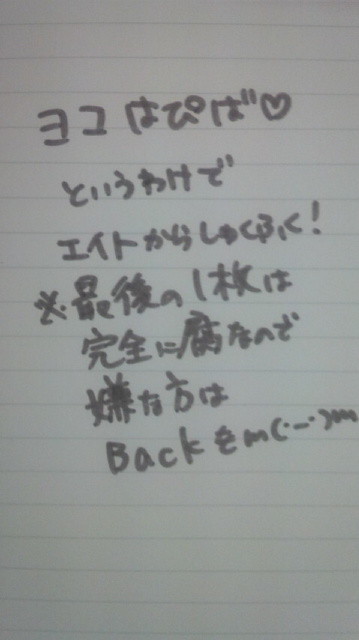 ヨコ はぴば♡
というわけで
エイトからしゅくふく!
※最後の1枚は
完全に腐なので
嫌な方は
Backをm(._.)m